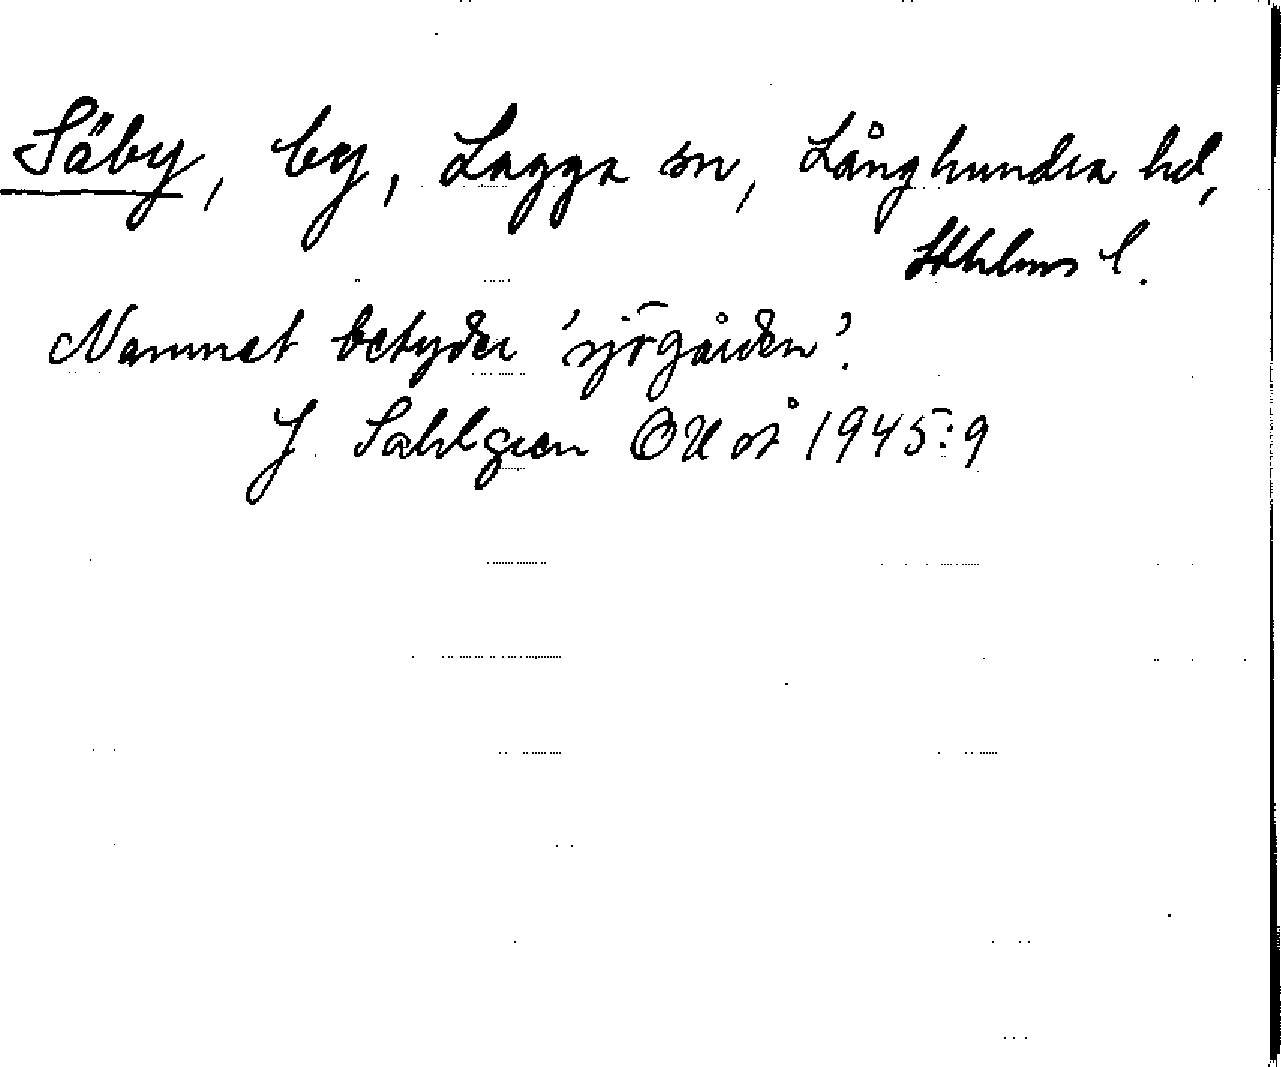 Säby, by, Lagga sn, Långhundra hd,
Sthlms l.
Namnet betyder 'sjögården'.
J. Sahlgren OUÅ 1945:9